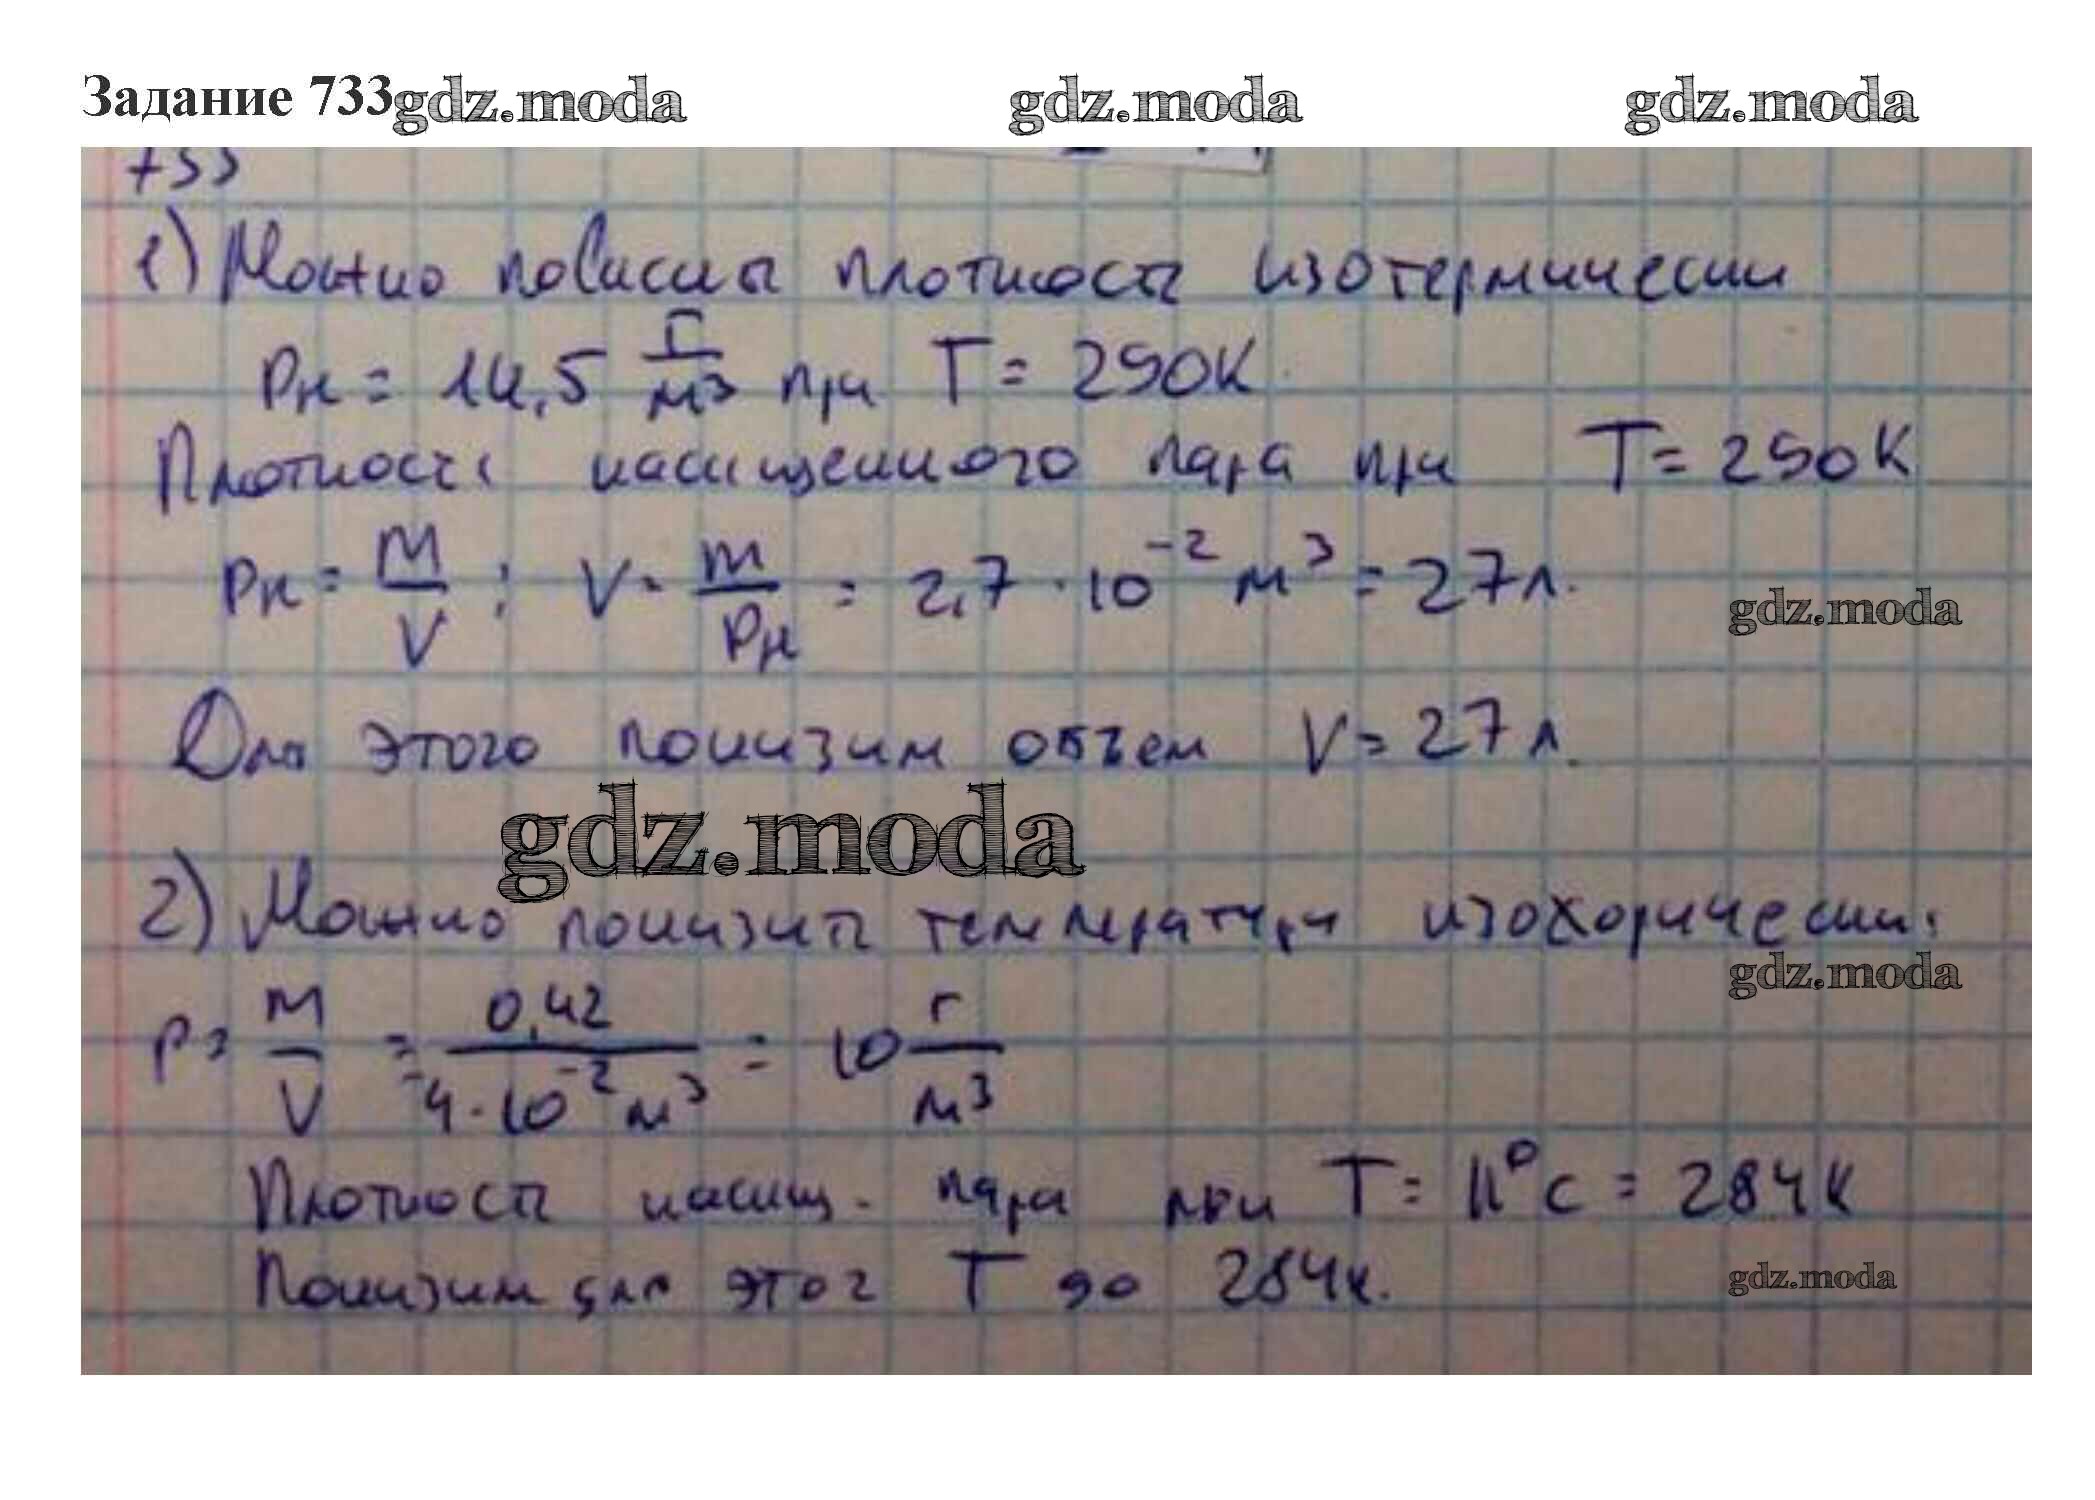 Задание 733 gdz.moda gdz.moda gdz.moda
733
1) Можно повысить плотность изотермически
ρн = 14,5 г/м³ при T = 290К.
Плотность насыщенного пара при T = 290К
ρн = m/V ; V = m/ρн = 2,7 · 10⁻² м³ = 27л.
gdz.moda
Для этого понизим объем V = 27л.
gdz.moda
2) Можно понизить температуру изохорически:
gdz.moda
ρ = m/V = 0,42/4·10⁻² м³ = 10 г/м³
Плотность насыщ. пара при T = 11°C = 284К
Понизим для этог T до 284К.
gdz.moda